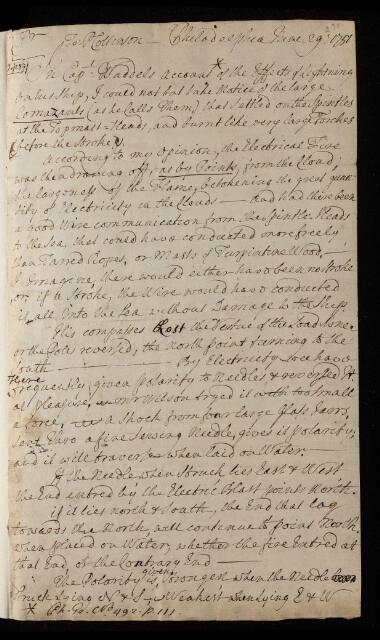 Philadelphia June 29th 1751
In Capt. Waddels Account of the Effects of Lightning
on his Ship, I could not but take Notice of the large
Comazants (as he calls Them) that Settled on the Spintles
at the Topmast-Heads, and burnt like very large Torches
before the Stroke.
According to my Opinion, the Electrical Fire
was then drawing off, as by Points, from the Cloud;
the largeness of the Flame, betokening the great quan
tity of Electricity in the Clouds — and had there been
a Good Wire communication from the Spintle Heads
to the Sea, that could have conducted more freely
than Tarred Ropes, or Masts of Turpintine Wood,
I Imagine, there would either have been no Stroke
or, if a Stroke, the Wire would have conducted
it all Into the Sea without Damage to the Ship.
His compasses Lost the Vertue of the Loadstone
or the Poles reversed, the North point turning to the
South — By Electricity we have
here
frequently given Polarity to Needles & reversed it
at pleasure, Mr Wilson tryed it with too Small
a force, a Shock from four large Glass Jarrs,
Sent thro a fine Sewing Needle, gives it Polarity,
and it will traverse when laid on Water.
If the Needle when Struck lies East & West
the End entred by the Electric Blast points North.
if it lies North & South, the End that lay
towards the North, will continue to point North
when placed on Water, whether the fire Entred at
that End, or the Contrary End —
given
The Polarity is Strongest when the Needle
Struck Lying N & S — Weakest when Lying E & W
* Ph. Tr. No 492. p. 111